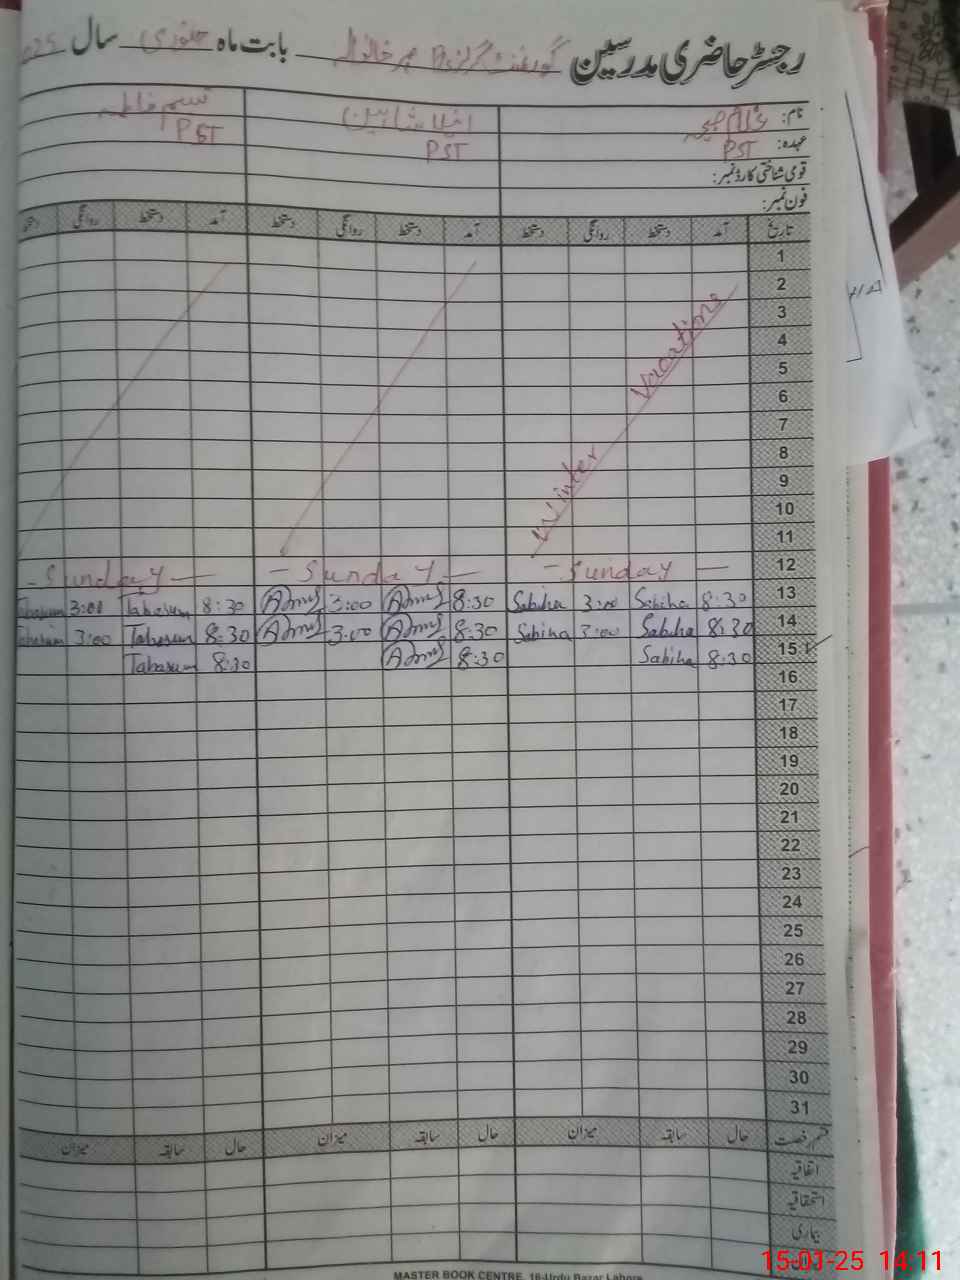 رجسٹر حاضری مدرسین گورنمنٹ گرلز مہر خانوالہ بابت ماہ جنوری سال 2025
نام: غلام صبیحہ انیلا شاہین نسیم فاطمہ
عہدہ: PST PST PST
قومی شناختی کارڈ نمبر:
فون نمبر:
تاریخ آمد دستخط روانگی دستخط آمد دستخط روانگی دستخط آمد دستخط روانگی دستخط
1
2
3
4
5
6
7
8
9
10
11
Winter Vacations
12 - Sunday — - Sunday — - Sunday —
13 8:30 Sabiha 3:00 Sabiha 8:30 3:00 8:30 Tabasum 3:00 Tabasum
14 8:30 Sabiha 3:00 Sabiha 8:30 3:00 8:30 Tabasum 3:00 Tabasum
15 8:30 Sabiha 8:30 8:30 Tabasum
16
17
18
19
20
21
22
23
24
25
26
27
28
29
30
31
قسم رخصت حال سابقہ میزان حال سابقہ میزان حال سابقہ میزان
اتفاقیہ
استحقاقیہ
بیماری
MASTER BOOK CENTRE, 16-Urdu Bazar Lahore
15-01-25 14:11